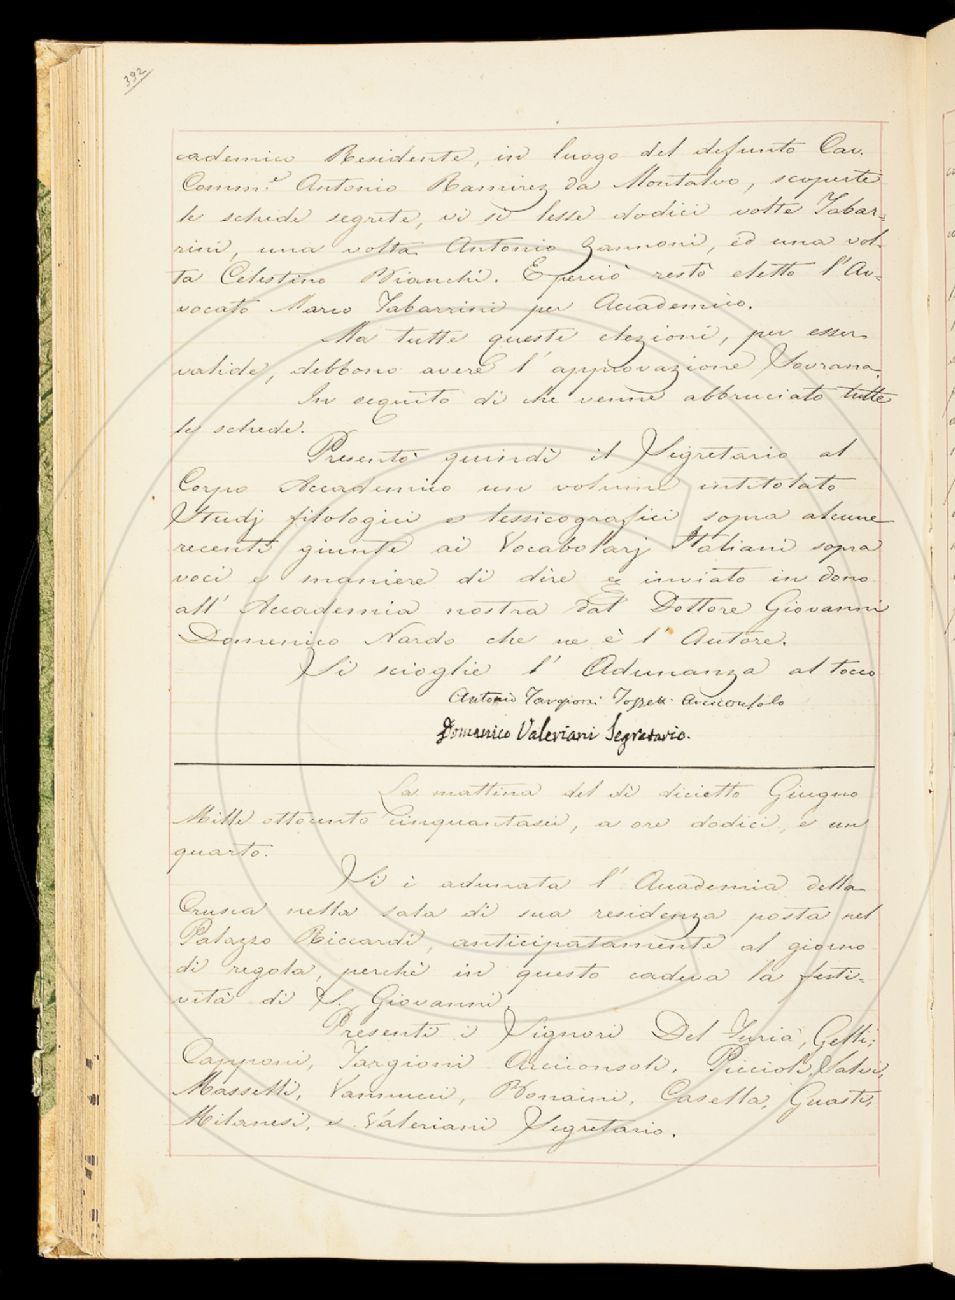 392
cademico Residente, in luogo del defunto Cav.
Comm.e Antonio Ramirez da Montalvo, scoperte
le schede segrete, vi si lesse dodici volte Tabar=
rini, una volta Antonio Zannoni, ed una vol=
ta Celestino Bianchi. E perciò restò eletto l'Av=
vocato Marco Tabarrini per Accademico.
Ma tutte queste elezioni, per esser
valide, debbono avere l'approvazione Sovrana.
In seguito di che venne abbruciato tutte
le schede.
Presentò quindi il Segretario al
Corpo Accademico un volume intitolato
Studj filologici e lessicografici sopra alcune
recenti giunte ai Vocabolarj Italiani sopra
voci e maniere di dire e inviato in dono
all'Accademia nostra dal Dottore Giovanni
Domenico Nardo che ne è l'Autore.
Si scioglie l'Adunanza al tocco
Antonio Targioni Tozzetti Arciconsolo
Domenico Valeriani Segretario.
La mattina del dì diciotto Giugno
Mille ottocento cinquantasei, a ore dodici, e un
quarto.
Si è adunata l'Accademia della
Crusca nella sala di sua residenza posta nel
Palazzo Riccardi, anticipatamente al giorno
di regola, perchè in questo cadeva la festi=
vità di S. Giovanni.
Presenti i Signori Del Furia, Gelli,
Capponi, Targioni Arciconsolo, Piccioli, Salvi,
Masselli, Vannucci, Bonaini, Casella, Guasti,
Milanesi, e Valeriani Segretario.